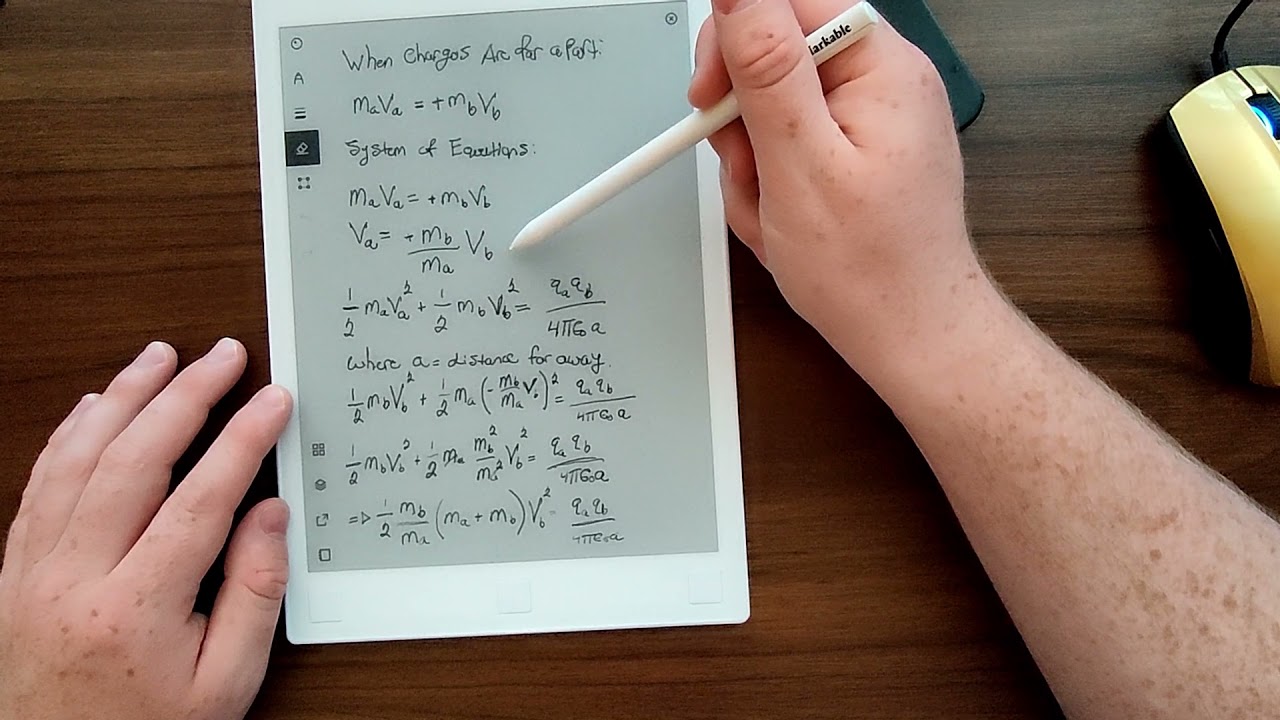 When Charges Are far apart:
mₐVₐ = +m_bV_b
System of Equations:
mₐVₐ = +m_bV_b
Vₐ = +m_b/mₐ V_b
1/2 mₐVₐ² + 1/2 m_bV_b² = qₐq_b/4πε₀a
where a = distance far away.
1/2 m_bV_b² + 1/2 mₐ(-m_b/mₐ V_b)² = qₐq_b/4πε₀a
1/2 m_bV_b² + 1/2 mₐ m_b²/mₐ² V_b² = qₐq_b/4πε₀a
=> 1/2 m_b/mₐ (mₐ + m_b)V_b² = qₐq_b/4πε₀a
markable
A